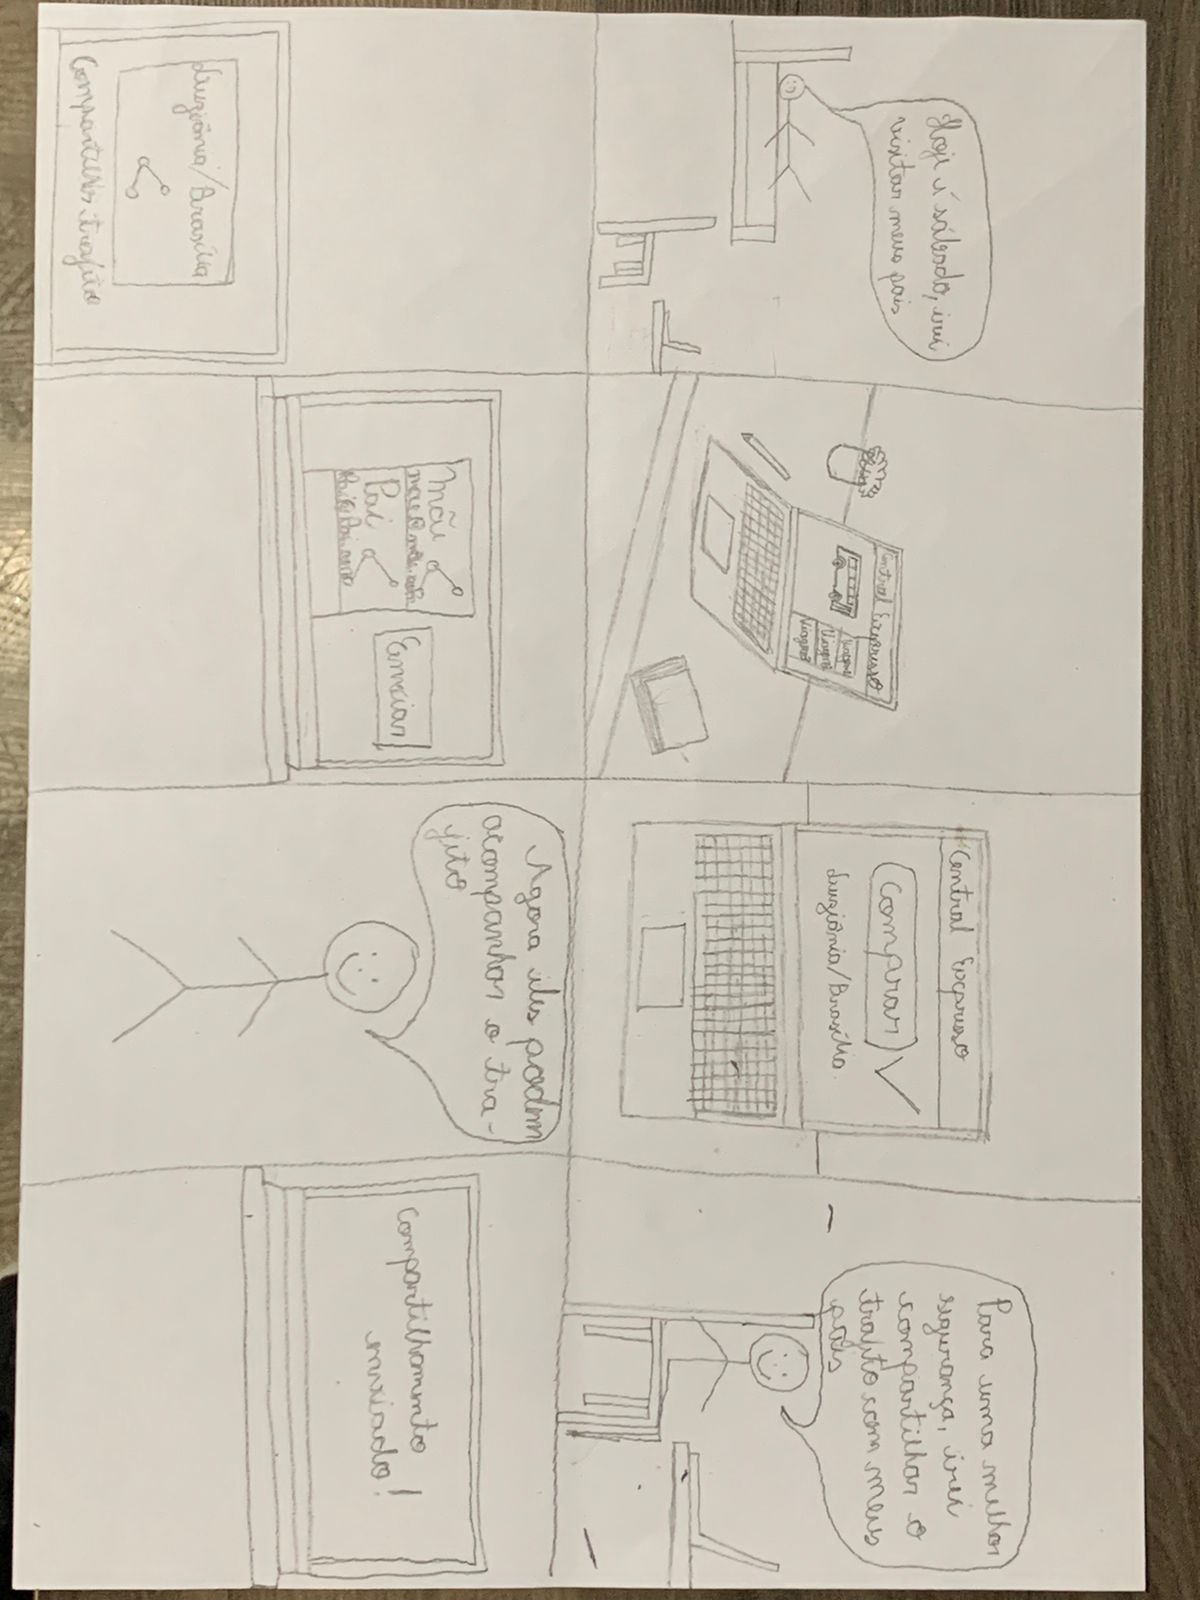 Hoje é sábado, irei
visitar meus pais
Central Expresso
Viagem
Viagem
Viagem
Central Expresso
Comprar
Luziânia/Brasília
Para uma melhor
segurança, irei
compartilhar o
trajeto com meus
pais
Luziânia/Brasília
Compartilhar trajeto
Mãe
mae@mãe.com
Pai
Pai@Pai.com
Enviar
Agora eles podem
acompanhar o tra-
jeto
Compartilhamento
enviado!